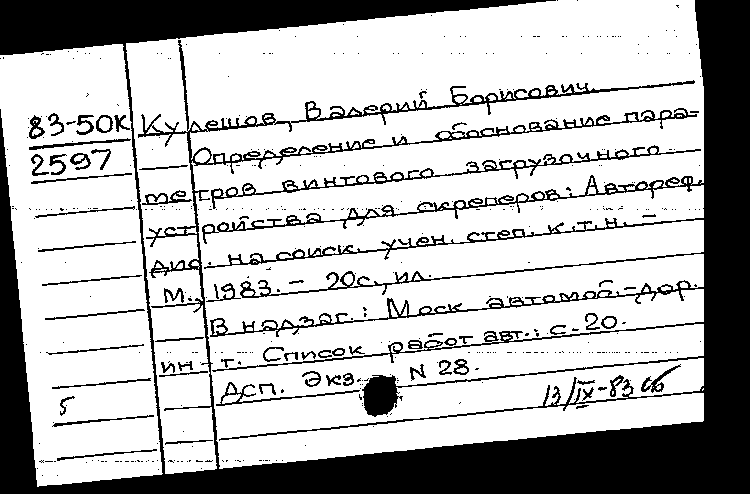 83-50К
2597
Кулешов, Валерий Борисович.
Определение и обоснование пара=
метров винтового загрузочного
устройства для скреперов: Автореф.
дис. на соиск. учен. степ. к.т.н. –
М., 1983. – 20с., ил.
В надзаг.: Моск автомоб.-дор.
ин-т. Список работ авт.: с. 20.
Дсп. Экз N 28.
5
13/IX-83